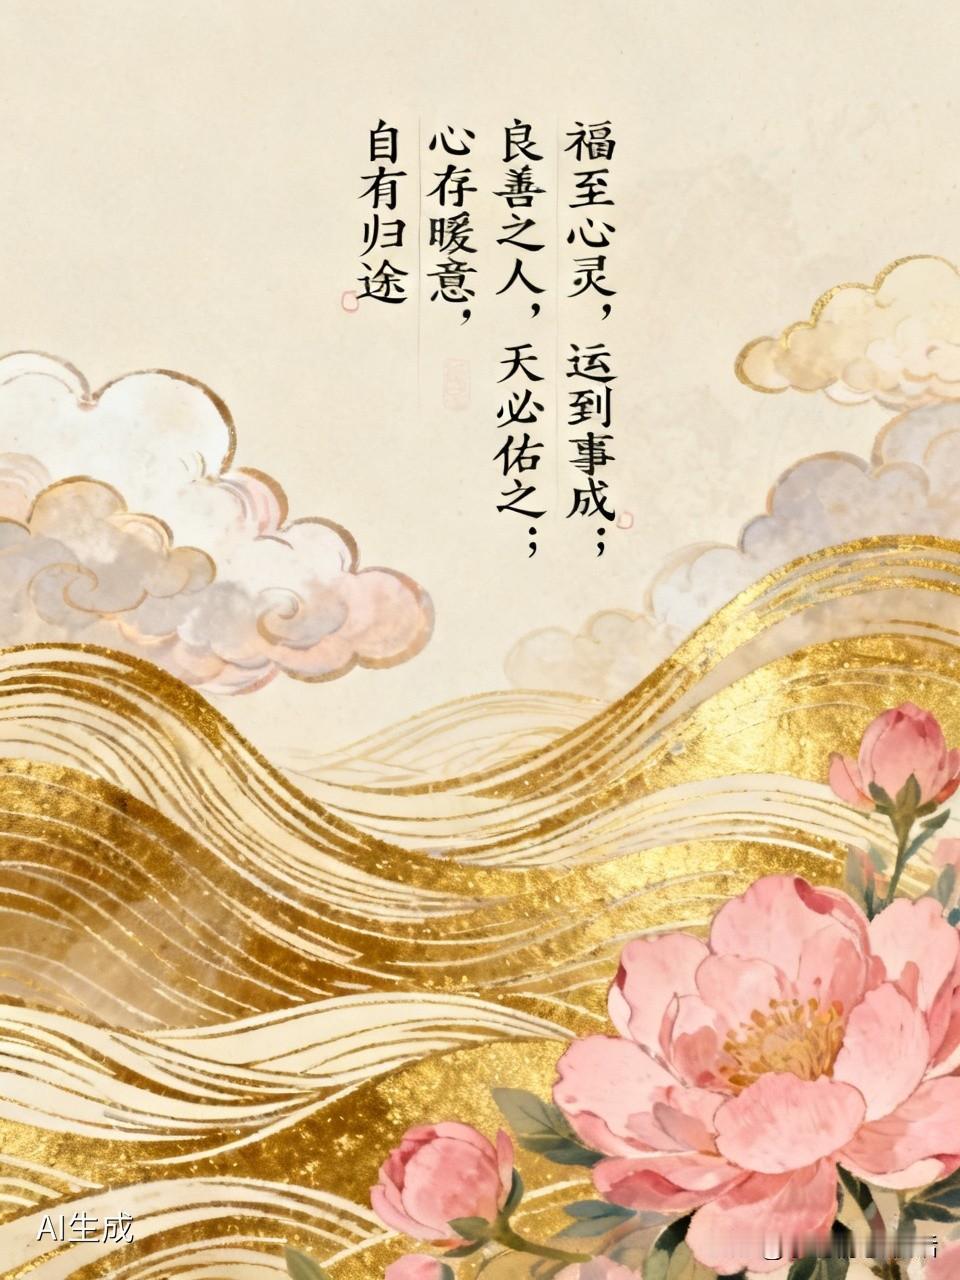 福至心灵，运到事成；
良善之人，天必佑之；
心存暖意，
自有归途
AI生成